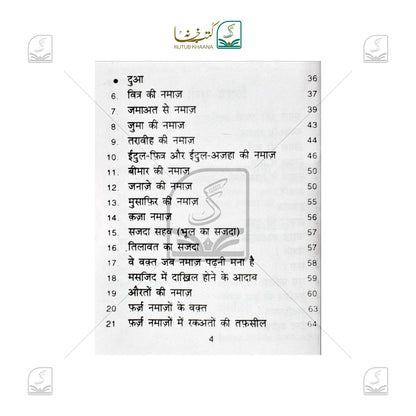 کتب خانہ
KUTUB KHAANA
• दुआ 36
6. वित्र की नमाज़ 37
7. जमाअत से नमाज़ 39
8 जुमा की नमाज़ 43
9 तरावीह की नमाज़ 44
10 ईदुल-फ़ित्र और ईदुल-अज़हा की नमाज़ 46
11 बीमार की नमाज़ 50
12 जनाज़े की नमाज़ 50
13 मुसाफ़िर की नमाज़ 55
14 क़ज़ा नमाज़ 56
15 सजदा सहव (भूल का सजदा) 57
16 तिलावत का सजदा 57
17 वे वक़्त जब नमाज़ पढ़नी मना है 58
18 मसजिद में दाख़िल होने के आदाब 59
19 औरतों की नमाज़ 60
20 फ़र्ज़ नमाज़ों के वक़्त 63
21 फ़र्ज़ नमाज़ों में रकअतों की तफ़सील 64
4